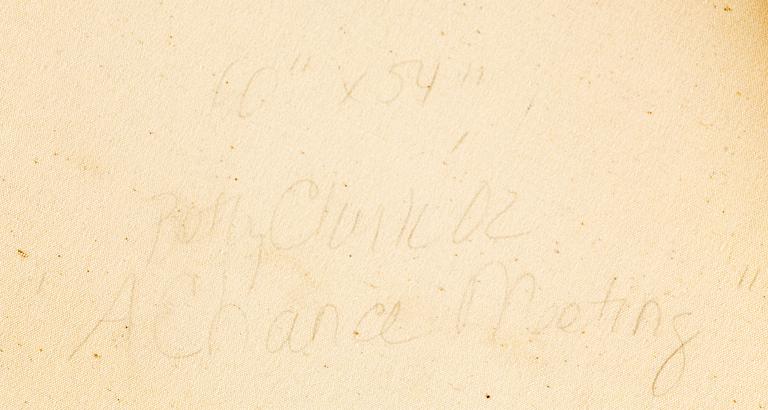 60" x 54"
Polly Clark 02
"A Chance Meeting"